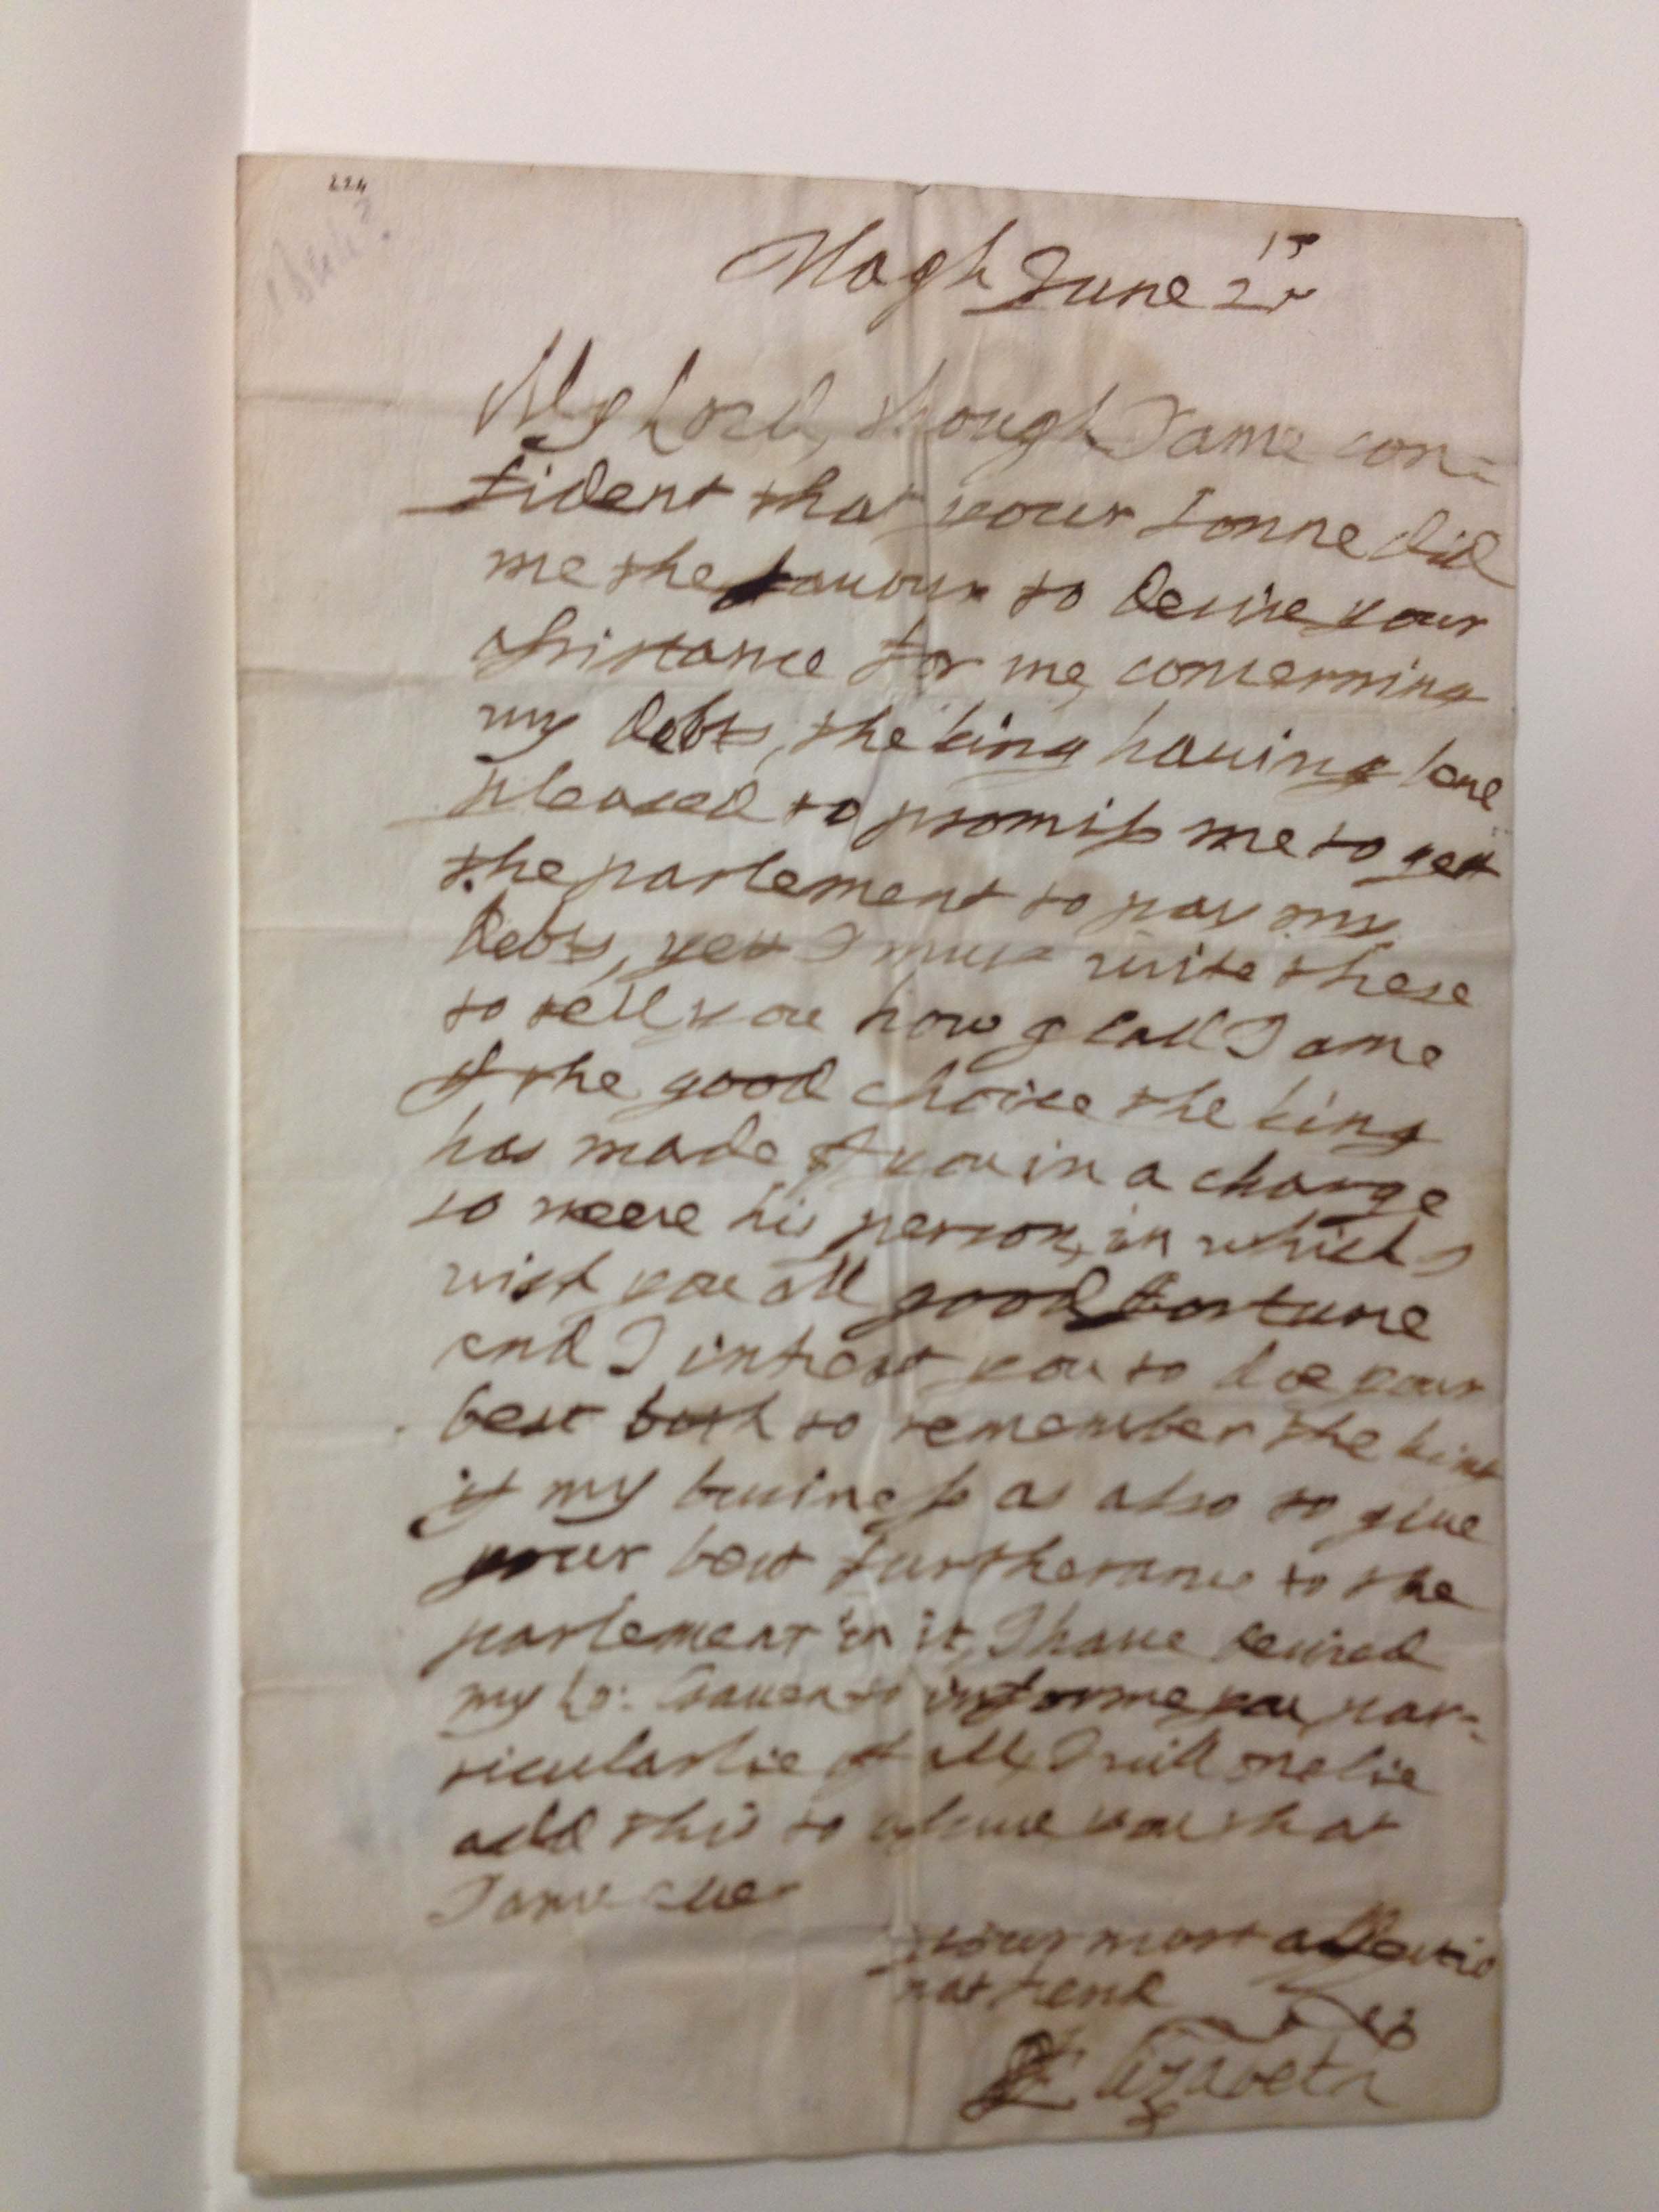 224
Hagh June 15
25
My Lord, though I ame con=
fident that your sonne did
me the favour to desire your
assistance for me, concerning
my debts, the king having bene
pleased to promiss me to gett
the parlement to pay my
debts, yett I must write these
to tell you how glad I ame
of the good choice the king
has made of you in a charge
so neere his person, in which I
wish you all good fortune
and I intreat you to doe your
best both to remember the king
of my business as also to give
your best furtherance to the
parlement in it, I have desired
my Lo: Craven to informe you par=
ticularlie of all, I will onelie
add this to assure you that
I ame ever
your most affectio
nat frend
Elizabeth